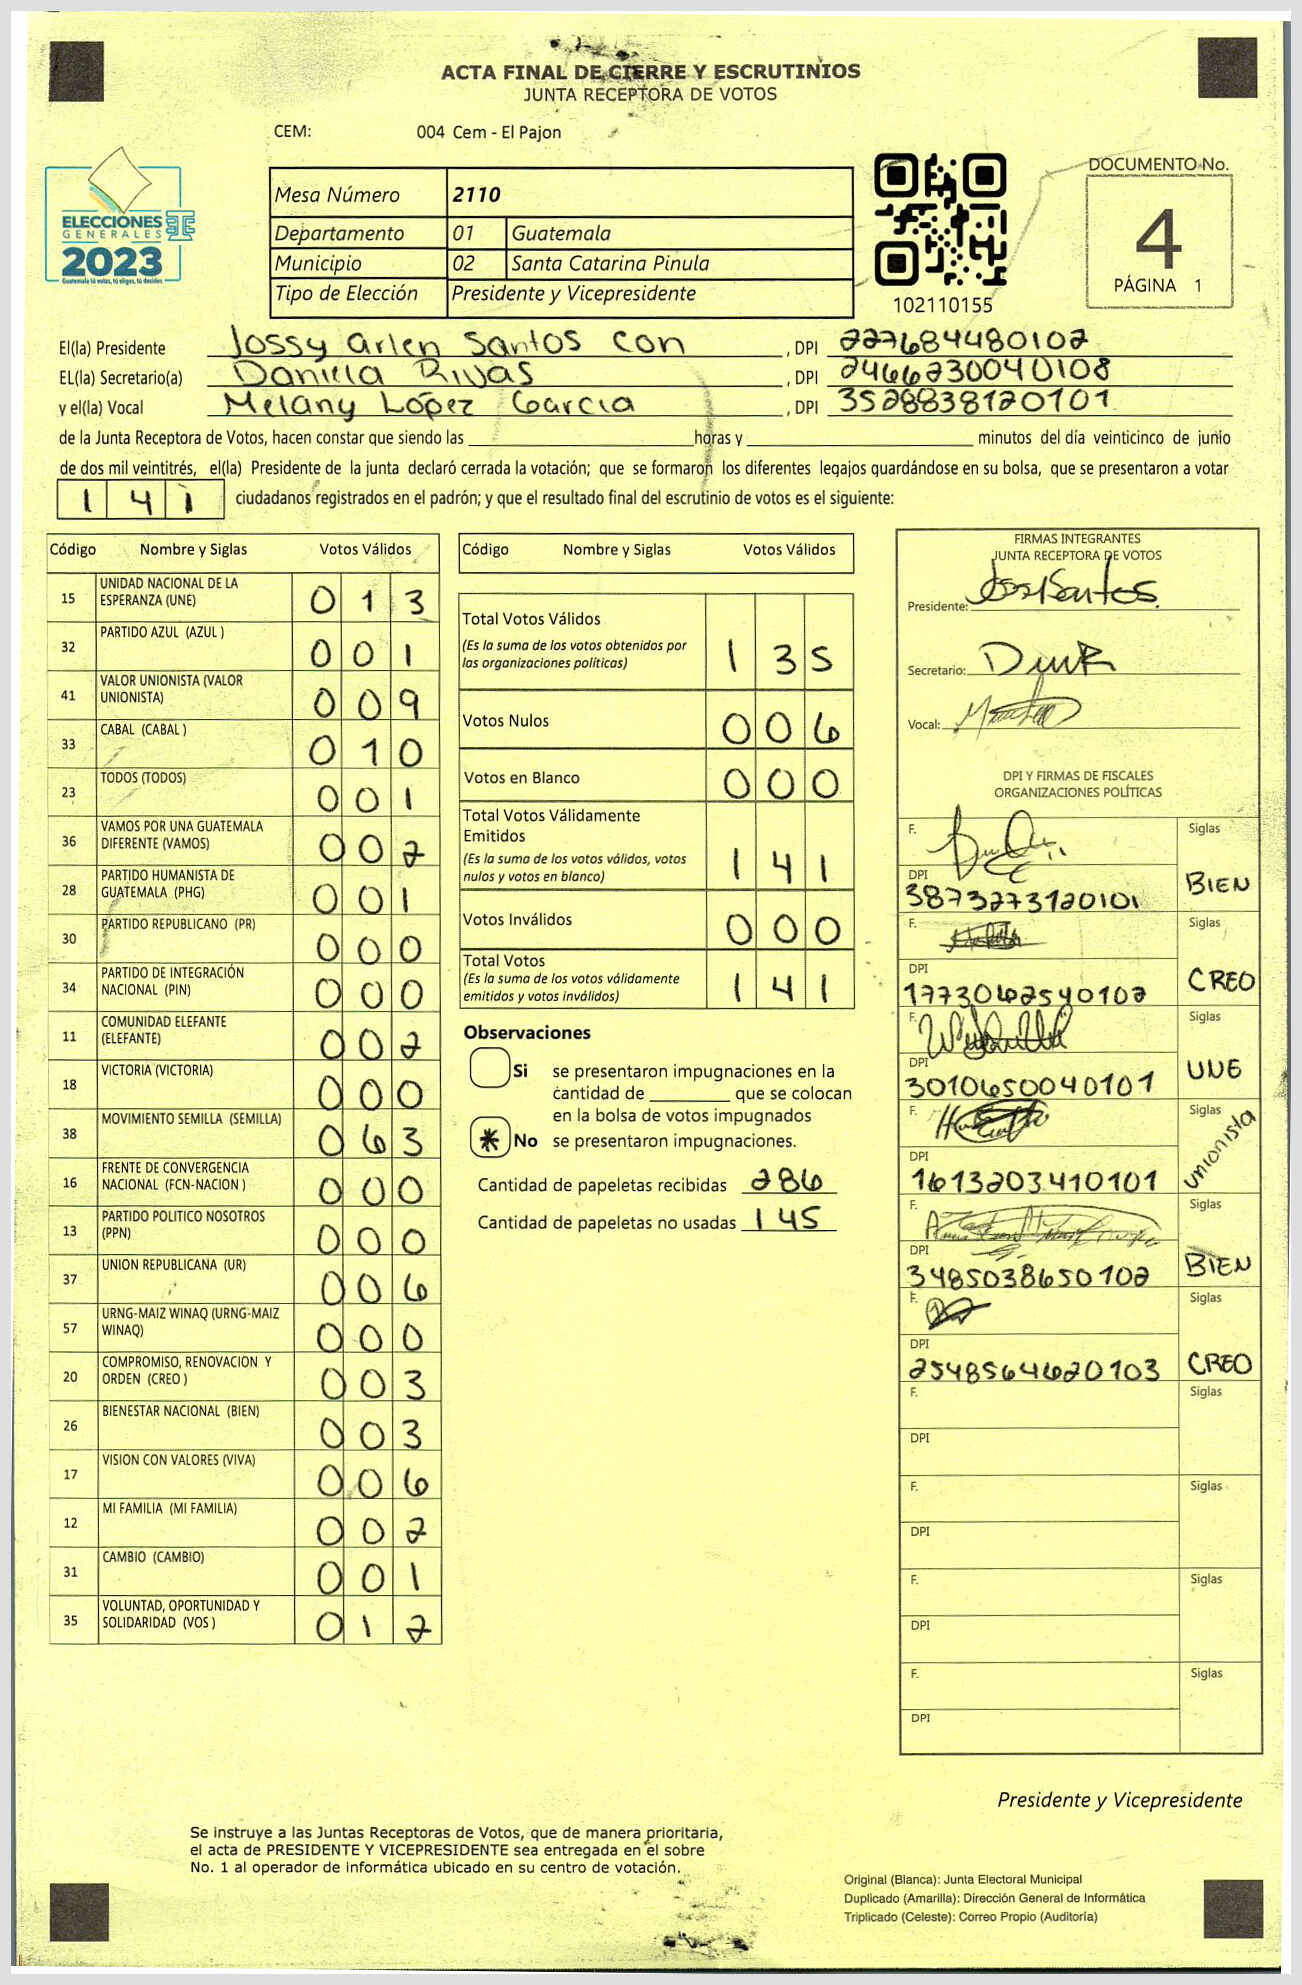 ACTA FINAL DE CIERRE Y ESCRUTINIOS
JUNTA RECEPTORA DE VOTOS
CEM: 004 Cem - El Pajon
ELECCIONES
GENERALES
2023
Guatemala tú votas, tú eliges, tú decides
Mesa Número 2110
Departamento 01 Guatemala
Municipio 02 Santa Catarina Pinula
Tipo de Elección Presidente y Vicepresidente
102110155
DOCUMENTO No.
4
PÁGINA 1
El(la) Presidente Jossy Arlen Santos Con , DPI 227684480102
EL(la) Secretario(a) Daniela Rivas , DPI 2466230040108
y el(la) Vocal Melany López García , DPI 3528838120101
de la Junta Receptora de Votos, hacen constar que siendo las horas y minutos del día veinticinco de junio
de dos mil veintitrés, el(la) Presidente de la junta declaró cerrada la votación; que se formaron los diferentes legajos guardándose en su bolsa, que se presentaron a votar
1 4 1 ciudadanos registrados en el padrón; y que el resultado final del escrutinio de votos es el siguiente:
Código Nombre y Siglas Votos Válidos
15 UNIDAD NACIONAL DE LA ESPERANZA (UNE) 0 1 3
32 PARTIDO AZUL (AZUL ) 0 0 1
41 VALOR UNIONISTA (VALOR UNIONISTA) 0 0 9
33 CABAL (CABAL ) 0 1 0
23 TODOS (TODOS) 0 0 1
36 VAMOS POR UNA GUATEMALA DIFERENTE (VAMOS) 0 0 2
28 PARTIDO HUMANISTA DE GUATEMALA (PHG) 0 0 1
30 PARTIDO REPUBLICANO (PR) 0 0 0
34 PARTIDO DE INTEGRACIÓN NACIONAL (PIN) 0 0 0
11 COMUNIDAD ELEFANTE (ELEFANTE) 0 0 2
18 VICTORIA (VICTORIA) 0 0 0
38 MOVIMIENTO SEMILLA (SEMILLA) 0 6 3
16 FRENTE DE CONVERGENCIA NACIONAL (FCN-NACION ) 0 0 0
13 PARTIDO POLITICO NOSOTROS (PPN) 0 0 0
37 UNION REPUBLICANA (UR) 0 0 6
57 URNG-MAIZ WINAQ (URNG-MAIZ WINAQ) 0 0 0
20 COMPROMISO, RENOVACION Y ORDEN (CREO ) 0 0 3
26 BIENESTAR NACIONAL (BIEN) 0 0 3
17 VISION CON VALORES (VIVA) 0 0 6
12 MI FAMILIA (MI FAMILIA) 0 0 2
31 CAMBIO (CAMBIO) 0 0 1
35 VOLUNTAD, OPORTUNIDAD Y SOLIDARIDAD (VOS ) 0 1 2
Código Nombre y Siglas Votos Válidos
Total Votos Válidos 1 3 5
(Es la suma de los votos obtenidos por
las organizaciones políticas)
Votos Nulos 0 0 6
Votos en Blanco 0 0 0
Total Votos Válidamente
Emitidos
(Es la suma de los votos válidos, votos
nulos y votos en blanco) 1 4 1
Votos Inválidos 0 0 0
Total Votos
(Es la suma de los votos válidamente
emitidos y votos inválidos) 1 4 1
Observaciones
Si se presentaron impugnaciones en la
cantidad de que se colocan
en la bolsa de votos impugnados
* No se presentaron impugnaciones.
Cantidad de papeletas recibidas 286
Cantidad de papeletas no usadas 145
FIRMAS INTEGRANTES
JUNTA RECEPTORA DE VOTOS
Presidente:
Secretario:
Vocal:
DPI Y FIRMAS DE FISCALES
ORGANIZACIONES POLÍTICAS
F. Siglas
DPI 3873273120101 BIEN
F. Siglas
DPI 1773062540102 CREO
F. Siglas
DPI 3010650040101 UNE
F. Siglas
DPI 1613203410101 unionista
F. Siglas
DPI 3485038650102 BIEN
F. Siglas
DPI 2548564620103 CREO
F. Siglas
DPI
F. Siglas
DPI
F. Siglas
DPI
F. Siglas
DPI
Presidente y Vicepresidente
Se instruye a las Juntas Receptoras de Votos, que de manera prioritaria,
el acta de PRESIDENTE Y VICEPRESIDENTE sea entregada en el sobre
No. 1 al operador de informática ubicado en su centro de votación.
Original (Blanca): Junta Electoral Municipal
Duplicado (Amarilla): Dirección General de Informática
Triplicado (Celeste): Correo Propio (Auditoría)